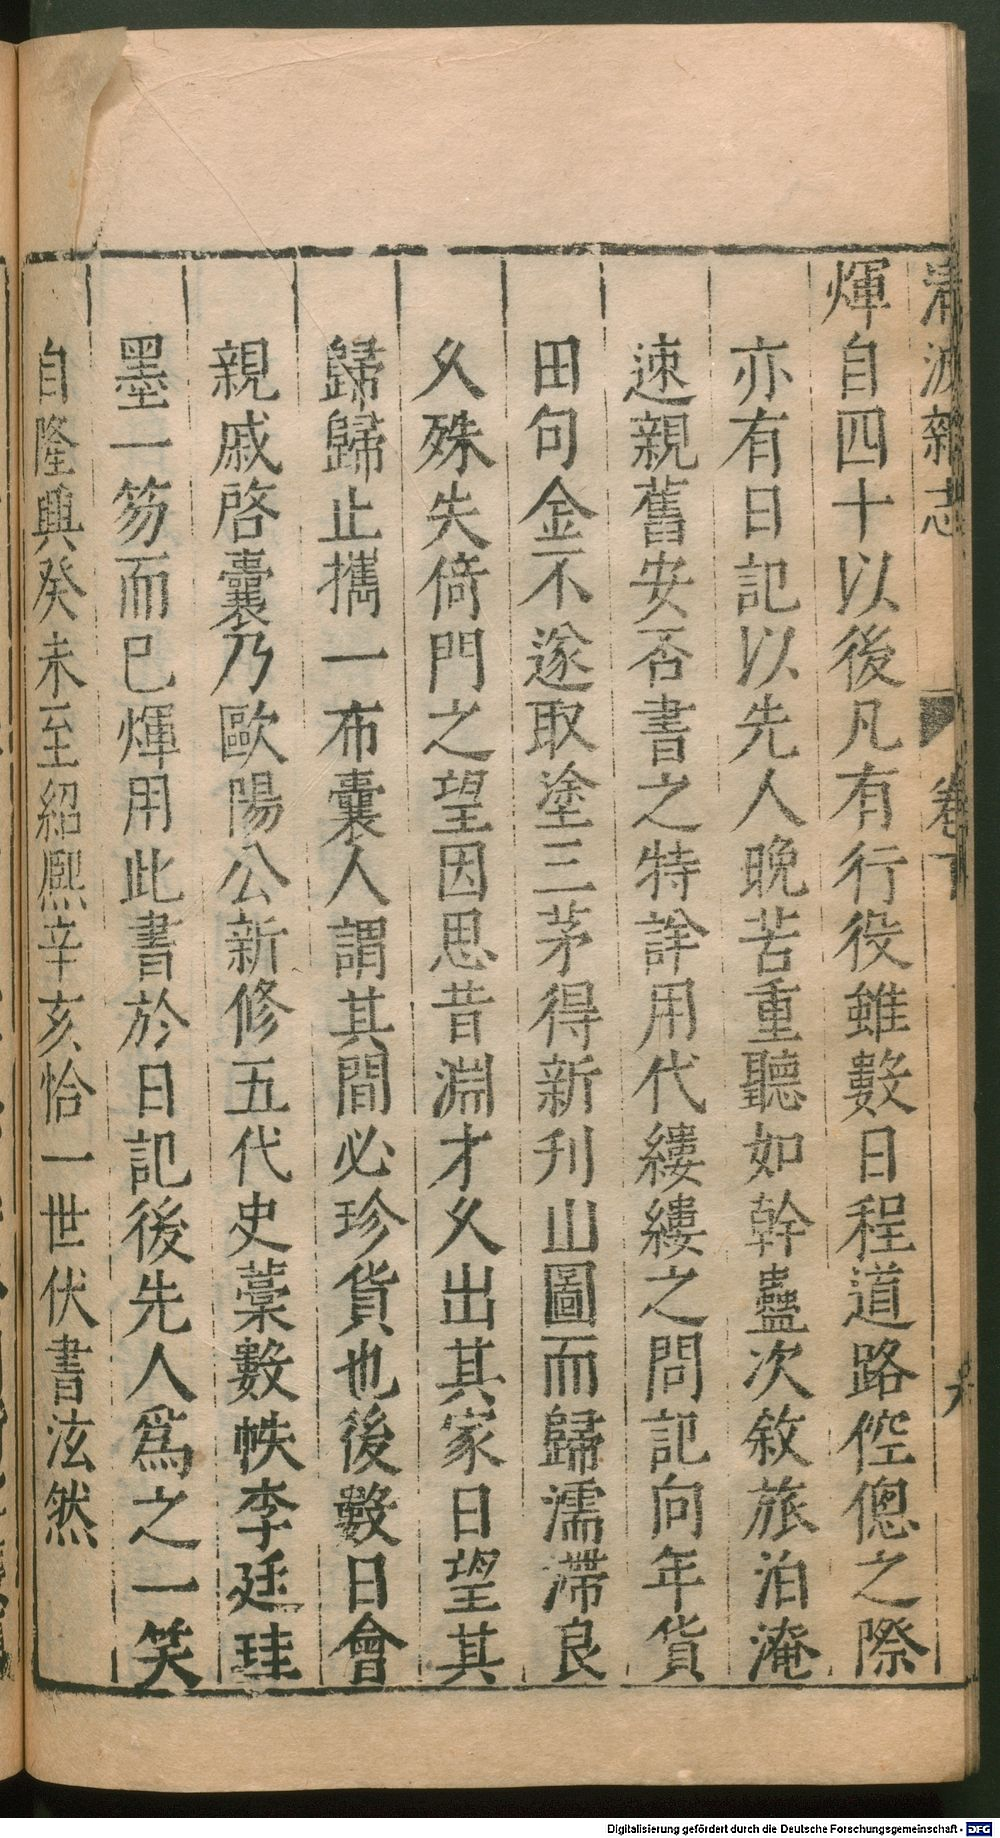 清波雜志 卷下
煇自四十以後凡有行役雖數日程道路倥傯之際
亦有日記以先人晚苦重聽如幹蠱次敘旅泊淹
速親舊安否書之特詳用代縷縷之問記向年貨
田句金不遂取塗三茅得新刊山圖而歸濡滯良
久殊失倚門之望因思昔淵才久出其家日望其
歸歸止攜一布囊人謂其間必珍貨也後數日會
親戚啓囊乃歐陽公新修五代史藁數帙李廷珪
墨一笏而已煇用此書於日記後先人爲之一笑
自隆興癸未至紹熙辛亥恰一世伏書泫然
Digitalisierung gefördert durch die Deutsche Forschungsgemeinschaft - DFG